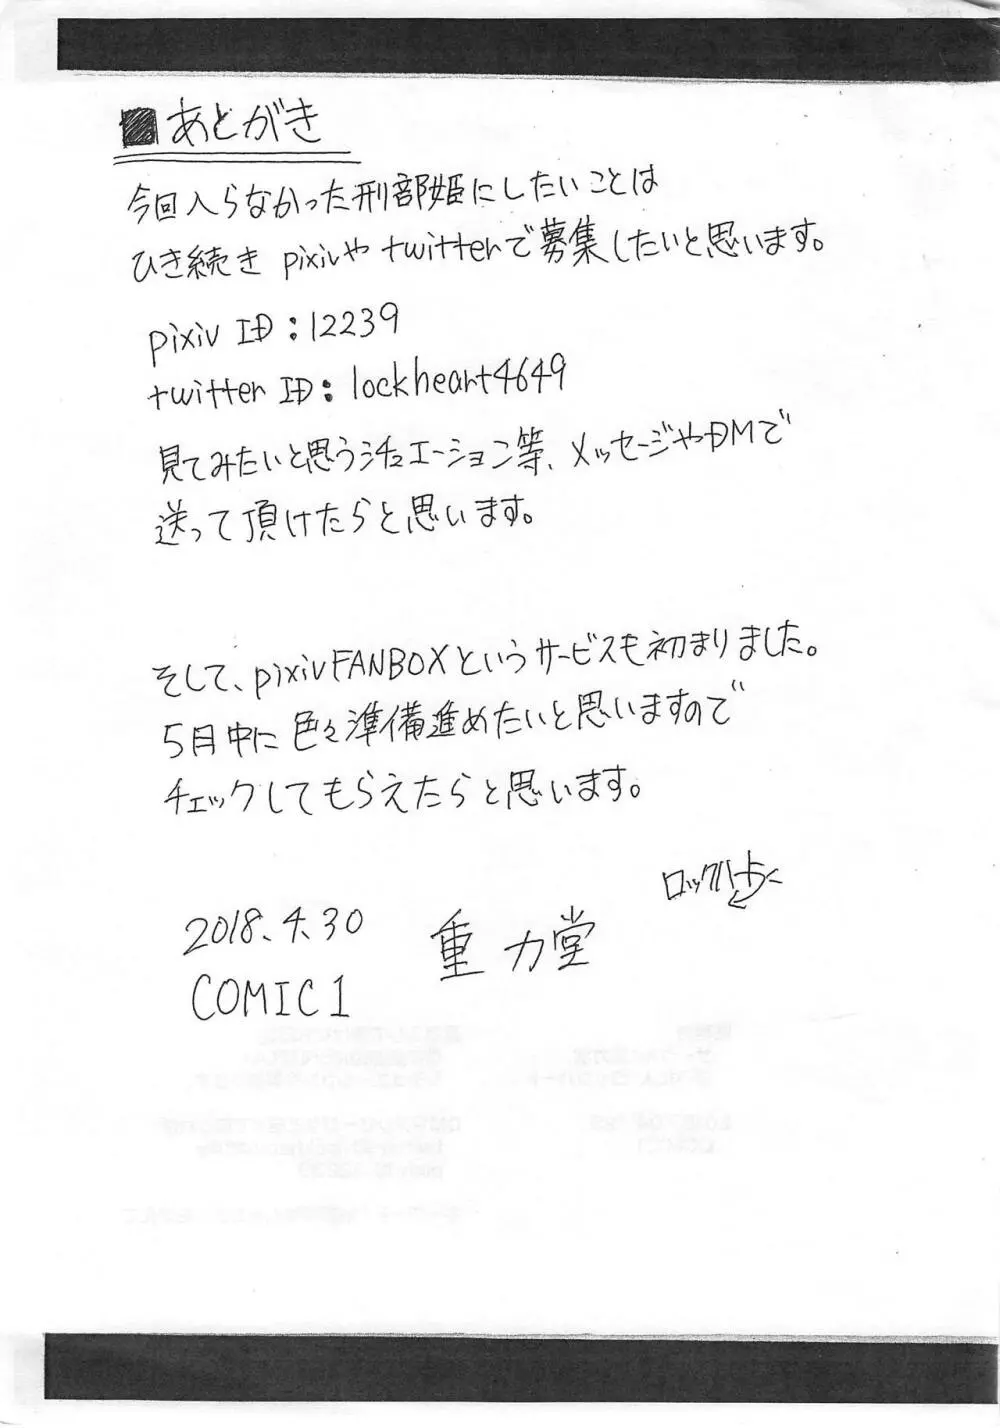 ■あとがき
今回入らなかった刑部姫にしたいことは
ひき続き pixivや twitterで募集したいと思います。
pixiv ID:12239
twitter ID: lockheart4649
見てみたいと思うシチュエーション等、メッセージやDMで
送って頂けたらと思います。
そして、pixivFANBOXというサービスも初まりました。
5月中に 色々準備進めたいと思いますので
チェックしてもらえたらと思います。
ロックハート
2018.4.30 重力堂
COMIC1